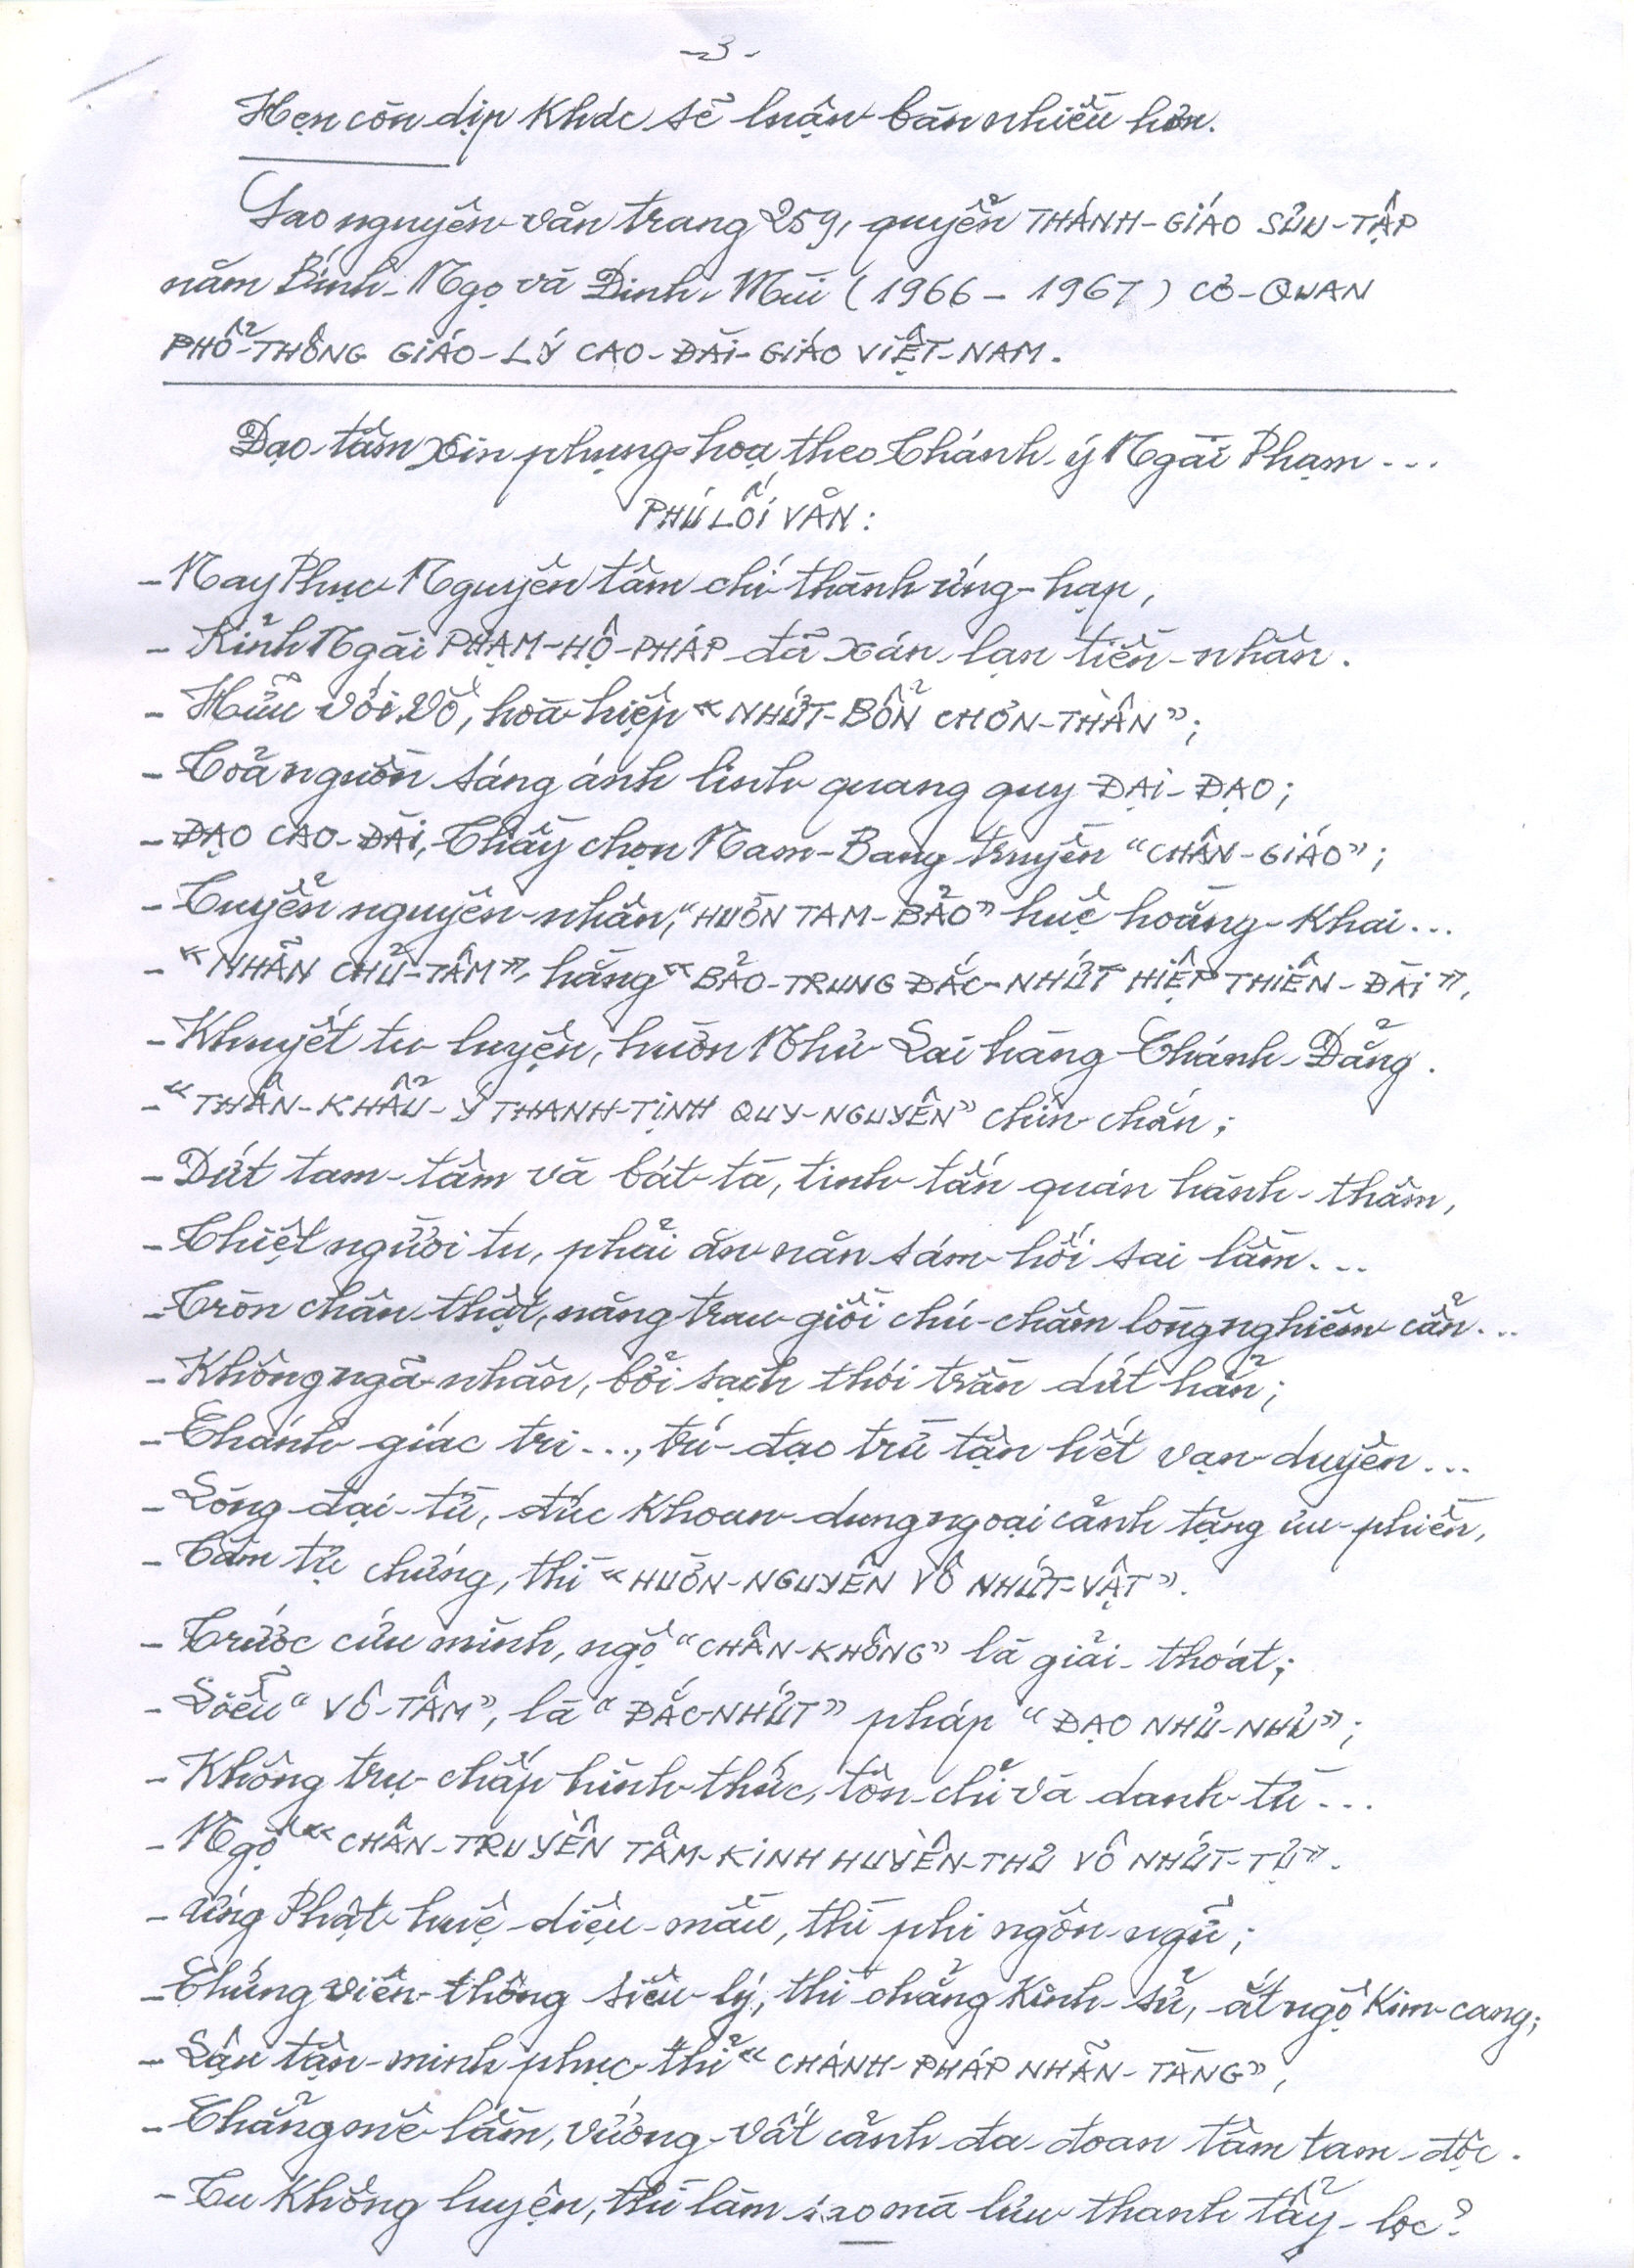 -3-
Hẹn còn dịp khác sẽ luận bàn nhiều hơn.
Sao nguyên văn trang 259, quyển THÁNH-GIÁO SƯU-TẬP
năm Bính-Ngọ và Đinh-Mùi (1966 - 1967) CƠ-QUAN
PHỔ-THÔNG GIÁO-LÝ CAO-ĐÀI-GIÁO VIỆT-NAM.
Đạo-tâm xin phụng-hoạ theo Thánh-ý Ngài Phạm...
PHÚ LỐI VĂN:
- Nay Phục-Nguyên tâm chí-thành ứng-hạp,
- Kỉnh Ngài PHẠM-HỘ-PHÁP đã xán-lạn tiền-nhân.
- Hữu với Vô, hoà-hiệp «NHỨT-BỔN CHƠN-THẦN»;
- Toả nguồn sáng ánh linh quang quy ĐẠI-ĐẠO;
- ĐẠO CAO-ĐÀI, Thầy chọn Nam-Bang truyền "CHÂN-GIÁO";
- Tuyển nguyên-nhân, "HUỜN TAM-BẢO" huệ hoằng-khai...
- «NHÃN CHỦ-TÂM», hằng «BẢO-TRUNG ĐẮC-NHỨT HIỆP THIÊN-ĐÀI»,
- Khuyết tu luyện, huờn Như Lai hàng Thánh-Đẳng.
- «THÂN-KHẨU-Ý THANH-TỊNH QUY-NGUYÊN» chín chắn;
- Dứt tam-tâm và bát-tà, tinh-tấn quán hành-thâm,
- Thiệt người tu, phải ăn năn sám-hối sai lầm...
- Tròn chân-thật, năng trau-giồi chú-châm lòng nghiêm cẩn...
- Không ngã-nhân, bôi sạch thói trần dứt hẳn;
- Thánh giác tri..., trí-đạo trừ tận hết vạn-duyên...
- Lòng đại-từ, đức khoan-dung ngoại cảnh tặng ưu-phiền,
- Tâm tự chứng, thì «HUỜN-NGUYÊN VÔ NHỨT-VẬT».
- Trước cứu mình, ngộ "CHÂN-KHÔNG" là giải-thoát;
- Liễu "VÔ-TÂM", là "ĐẮC-NHỨT" pháp "ĐẠO NHƯ-NHƯ";
- Không trụ-chấp hình-thức, tôn-chỉ và danh-từ...
- Ngộ «CHÂN-TRUYỀN TÂM-KINH HUYỀN-THƯ VÔ NHỨT-TỰ».
- Ứng Phật-huệ-diệu-mầu, thì phi ngôn-ngữ;
- Chứng viên-thông siêu-lý, thì chẳng Kinh-sử, ắt ngộ Kim-cang;
- Lậu tận-minh phục thỉ «CHÁNH-PHÁP NHÃN-TÀNG»,
- Chẳng mê-lầm, vướng-vất cảnh đa-đoan tâm tam-độc.
- Tu không luyện, thì làm sao mà lưu thanh tẩy-lọc?